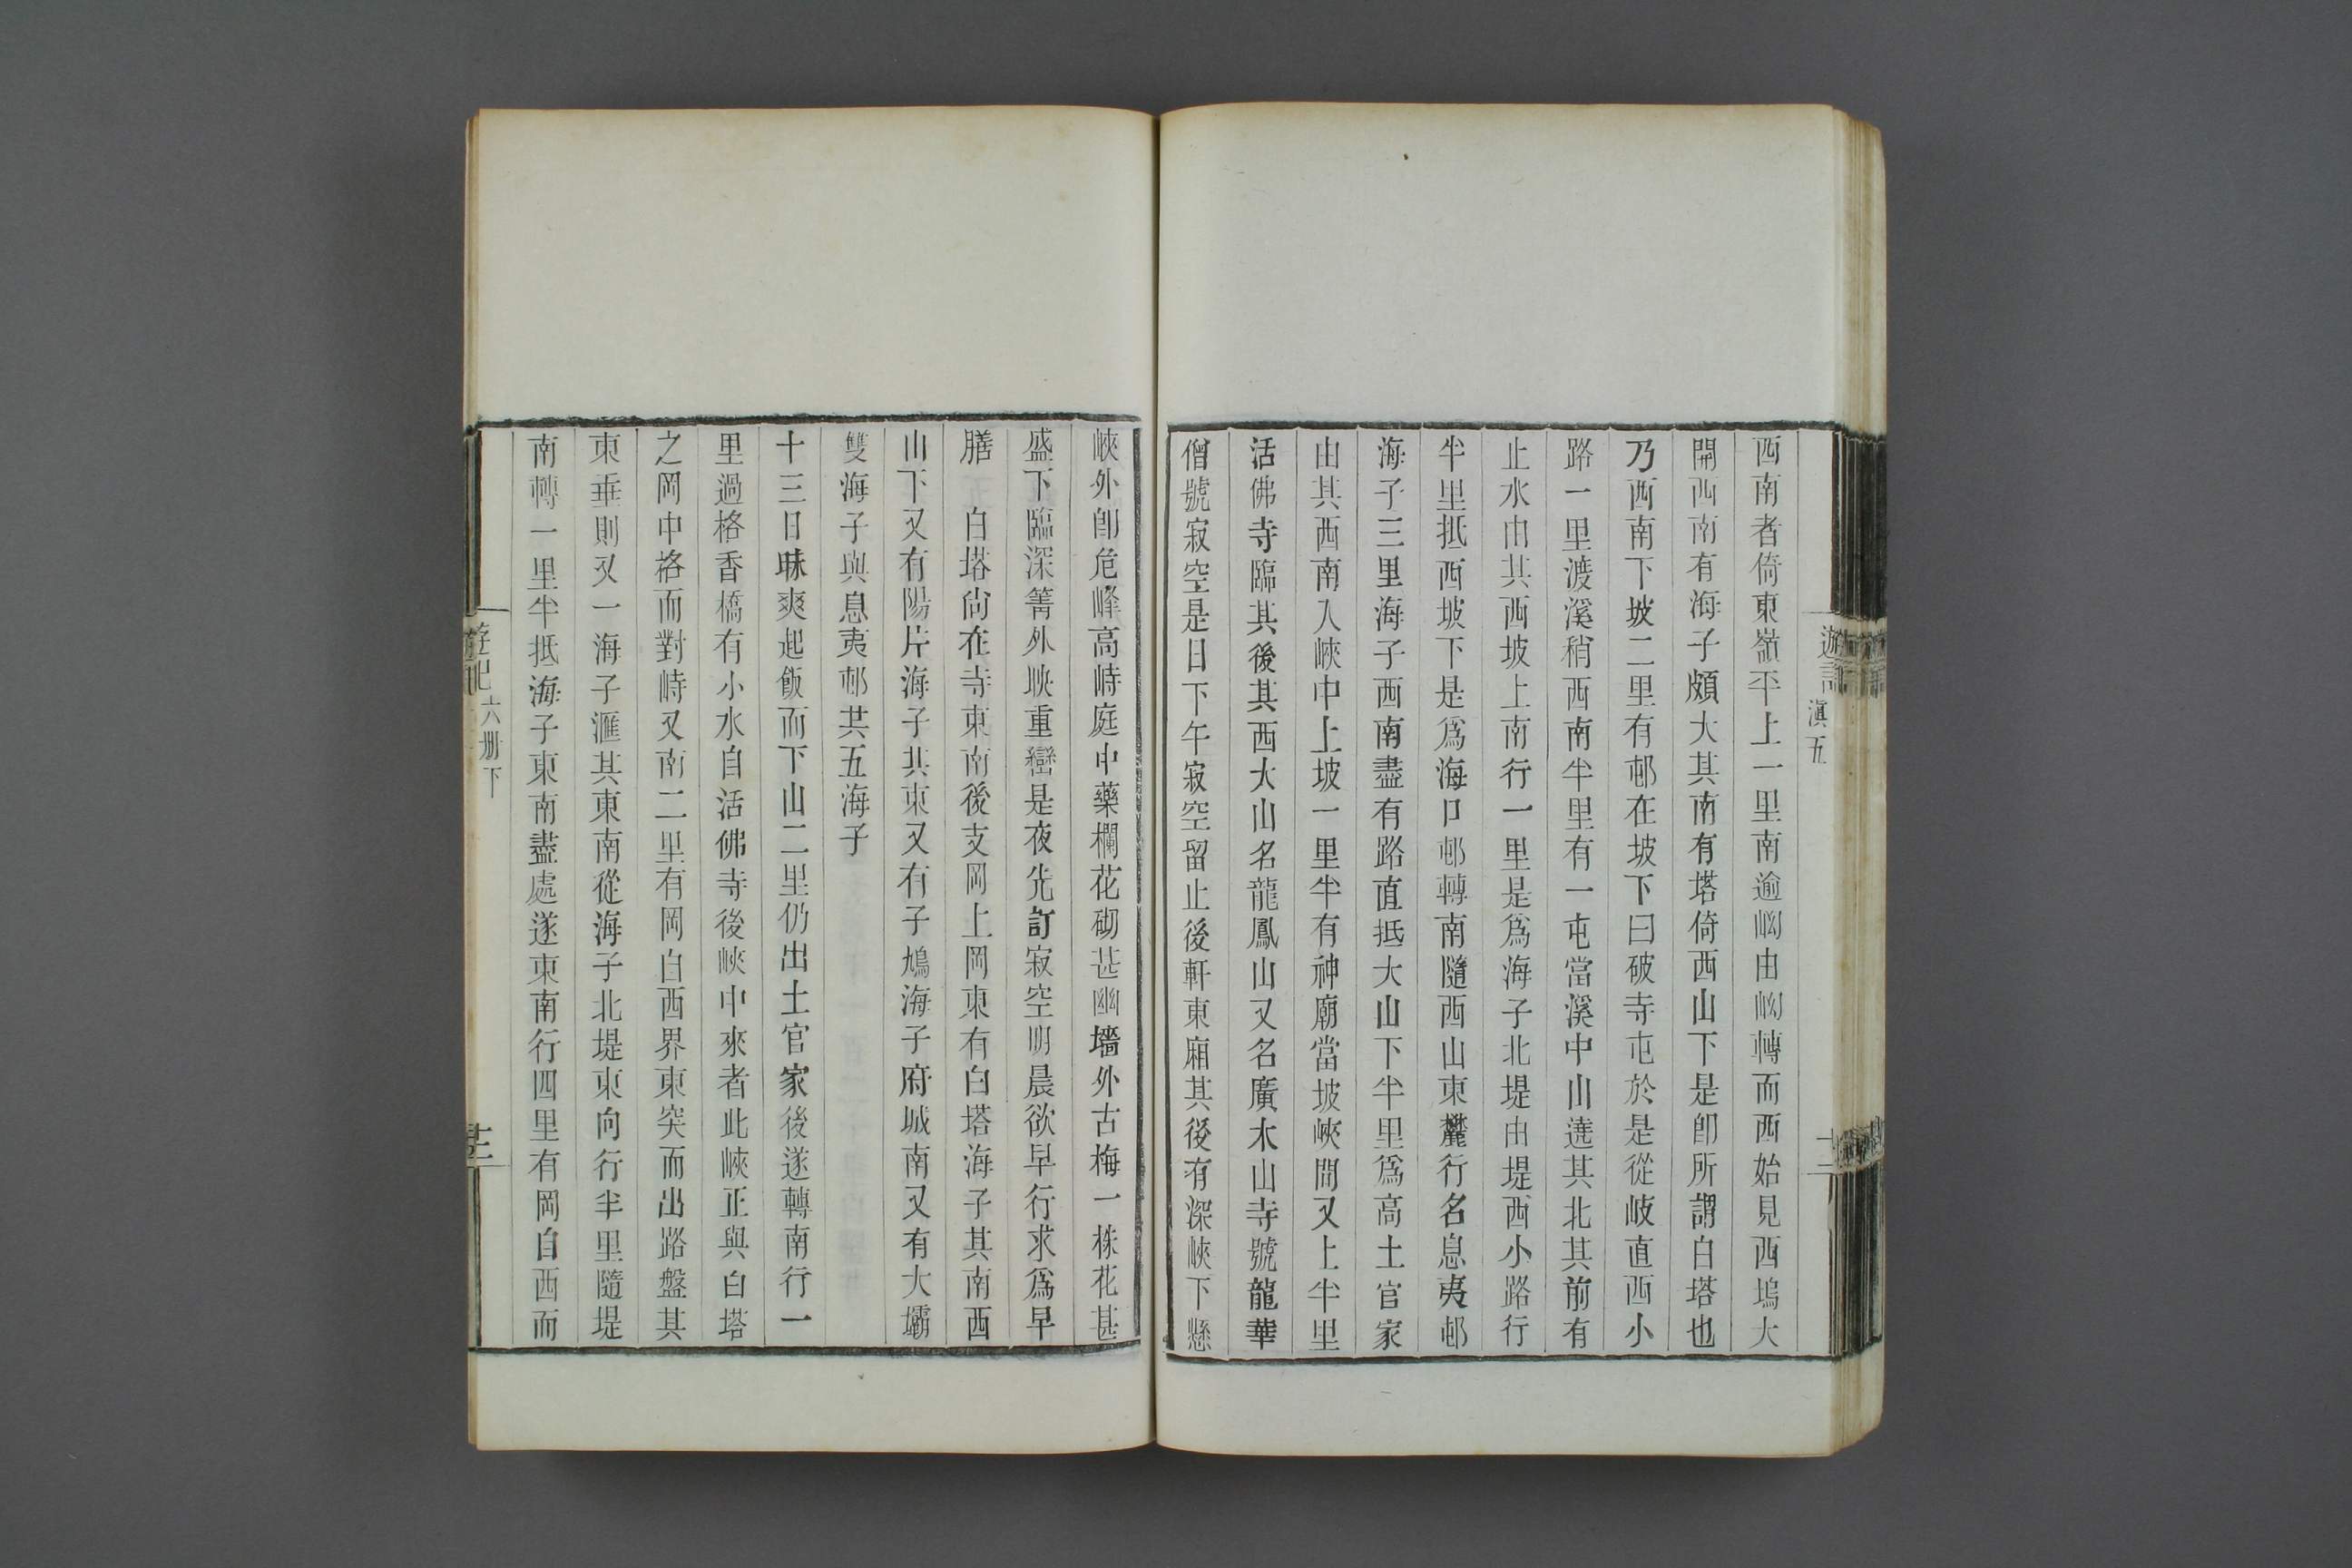 遊記
滇五
十二
西南者倚東嶺平上一里南逾㘭由㘭轉而西始見西塢大
開西南有海子頗大其南有塔倚西山下是卽所謂白塔也
乃西南下坡二里有邨在坡下曰破寺屯於是從岐直西小
路一里渡溪稍西南半里有一屯當溪中山遶其北其前有
止水由其西坡上南行一里是爲海子北堤由堤西小路行
半里抵西坡下是爲海口邨轉南隨西山東麓行名息夷邨
海子三里海子西南盡有路直抵大山下半里爲高土官家
由其西南入峽中上坡一里半有神廟當坡峽間又上半里
活佛寺臨其後其西大山名龍鳳山又名廣木山寺號龍華
僧號寂空是日下午寂空留止後軒東廂其後有深峽下懸
峽外卽危峰高峙庭中藥欄花砌甚幽墻外古梅一株花甚
盛下臨深箐外映重巒是夜先訂寂空明晨欲早行求爲早
膳 白塔尙在寺東南後支岡上岡東有白塔海子其南西
山下又有陽片海子其東又有子鳩海子府城南又有大壩
雙海子與息夷邨共五海子
十三日昧爽起飯而下山二里仍出土官家後遂轉南行一
里過格香橋有小水自活佛寺後峽中來者此峽正與白塔
之岡中格而對峙又南二里有岡自西界東突而出路盤其
東垂則又一海子滙其東南從海子北堤東向行半里隨堤
南轉一里半抵海子東南盡處遂東南行四里有岡自西而
遊記
六册下
十二